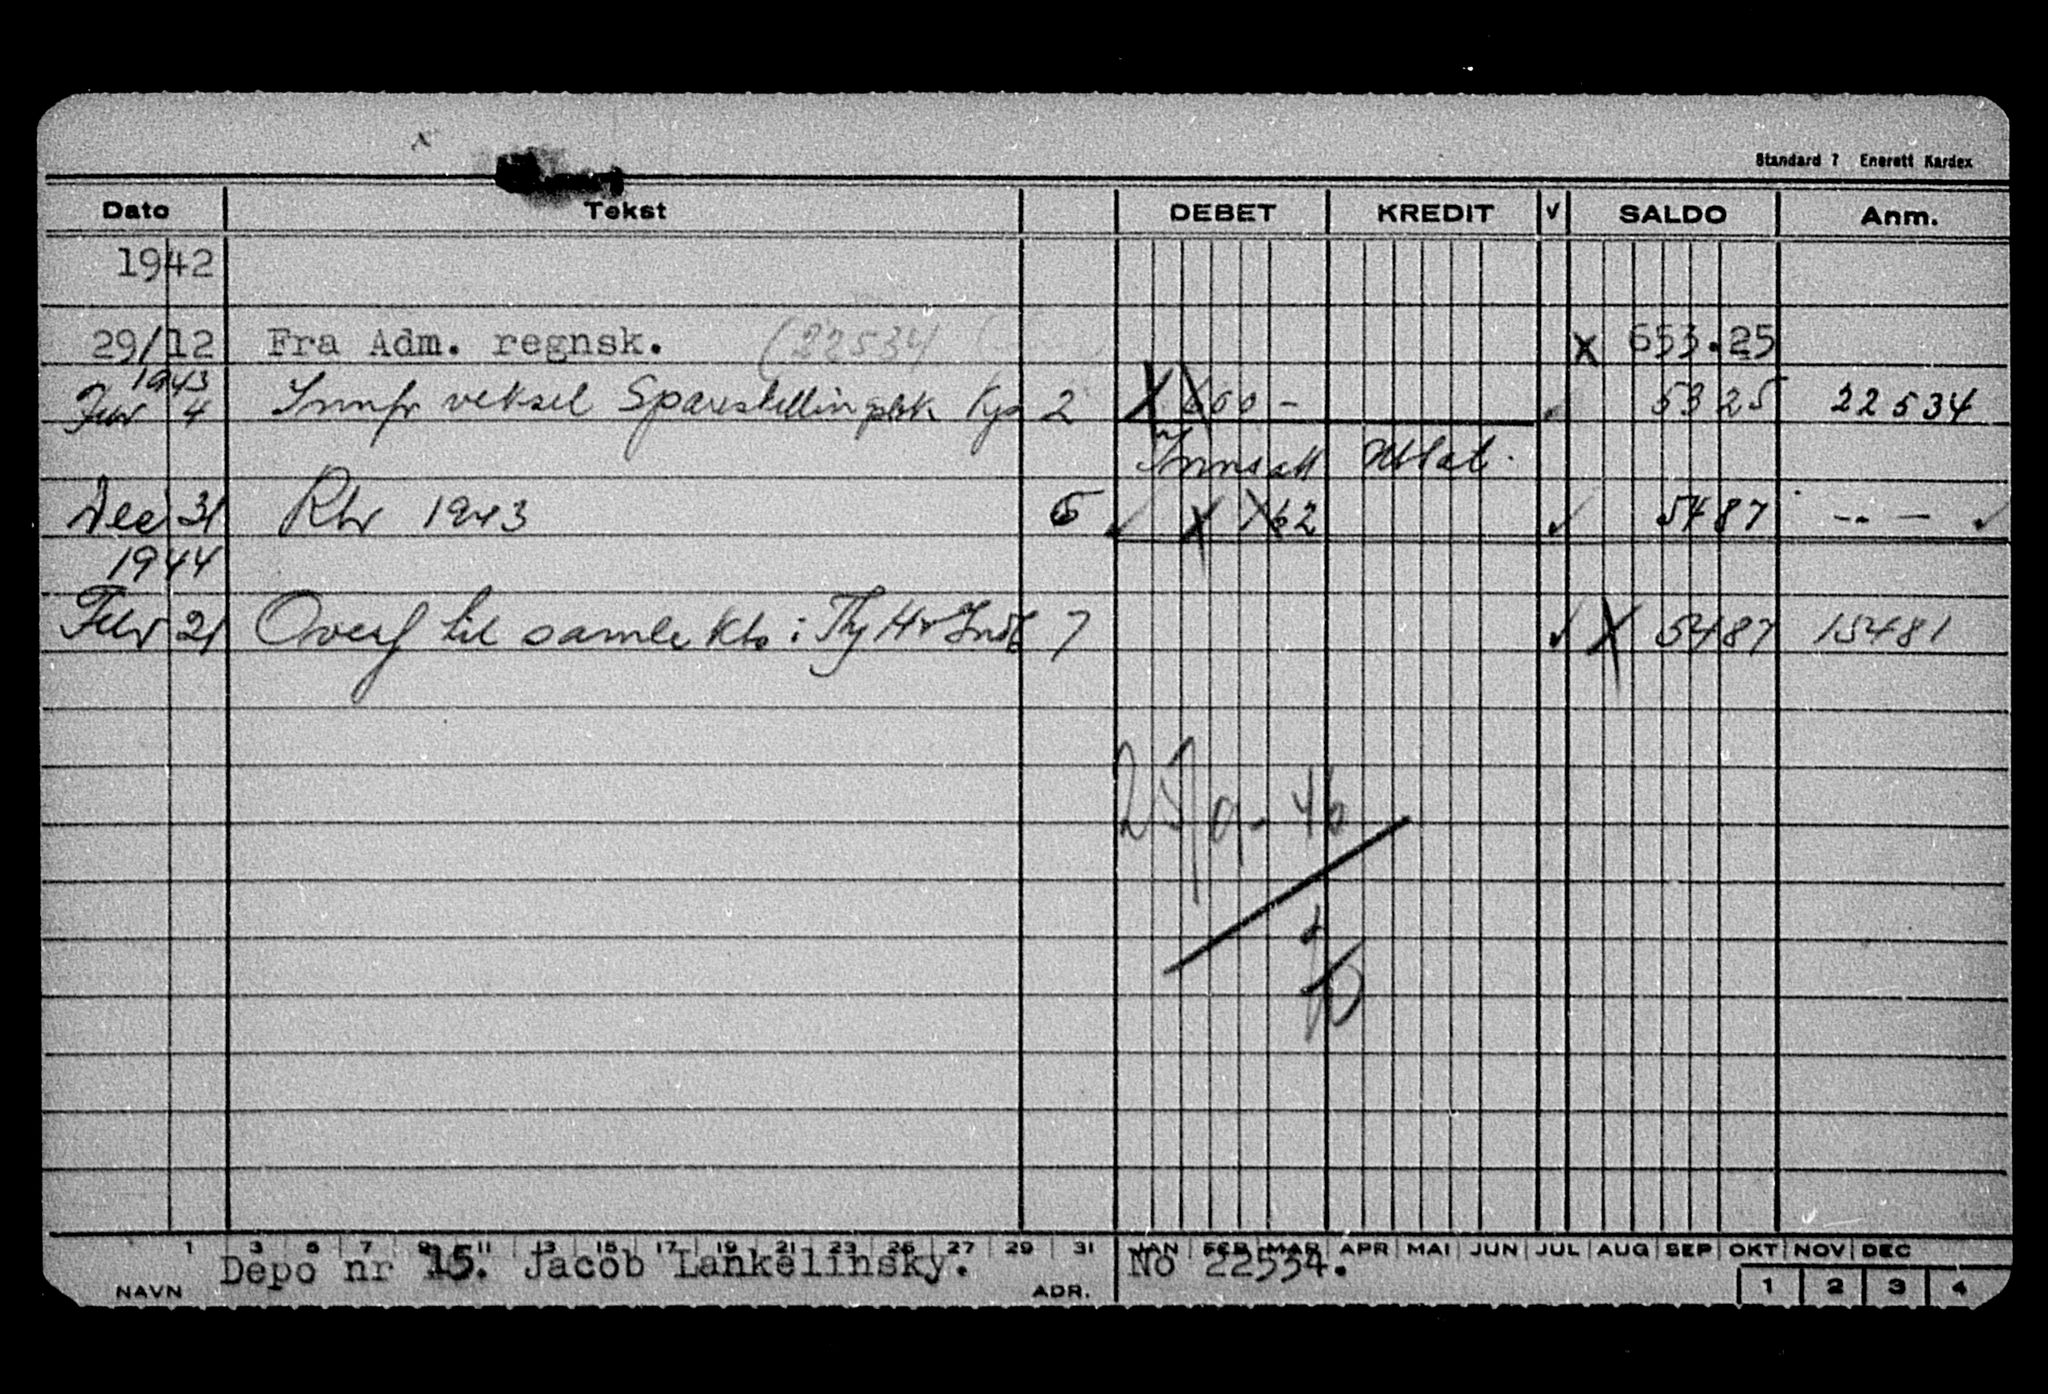 x
Standard 7 Enerett Kardex
Dato Tekst DEBET KREDIT √ SALDO Anm.
1942
29/12 Fra Adm. regnsk. (22534 x 653.25
1943
Febr 4 Innfr veksel 2 X 600 - 53 25 22534
Innsatt Uttat.
Dec 31 Rtr 1943 6 ✓ X 1 62 ✓ 54 87 -- — ✓
1944
Febr 21 Overf til samle kto i 7 ✓ X 54 87 15481
25/9-46
1 3 5 7 9 11 13 15 17 19 21 23 25 27 29 31 JAN FEB MAR APR MAI JUN JUL AUG SEP OKT NOV DEC
NAVN Depo nr 15. Jacob Lankelinsky. ADR. No 22534.
1 2 3 4